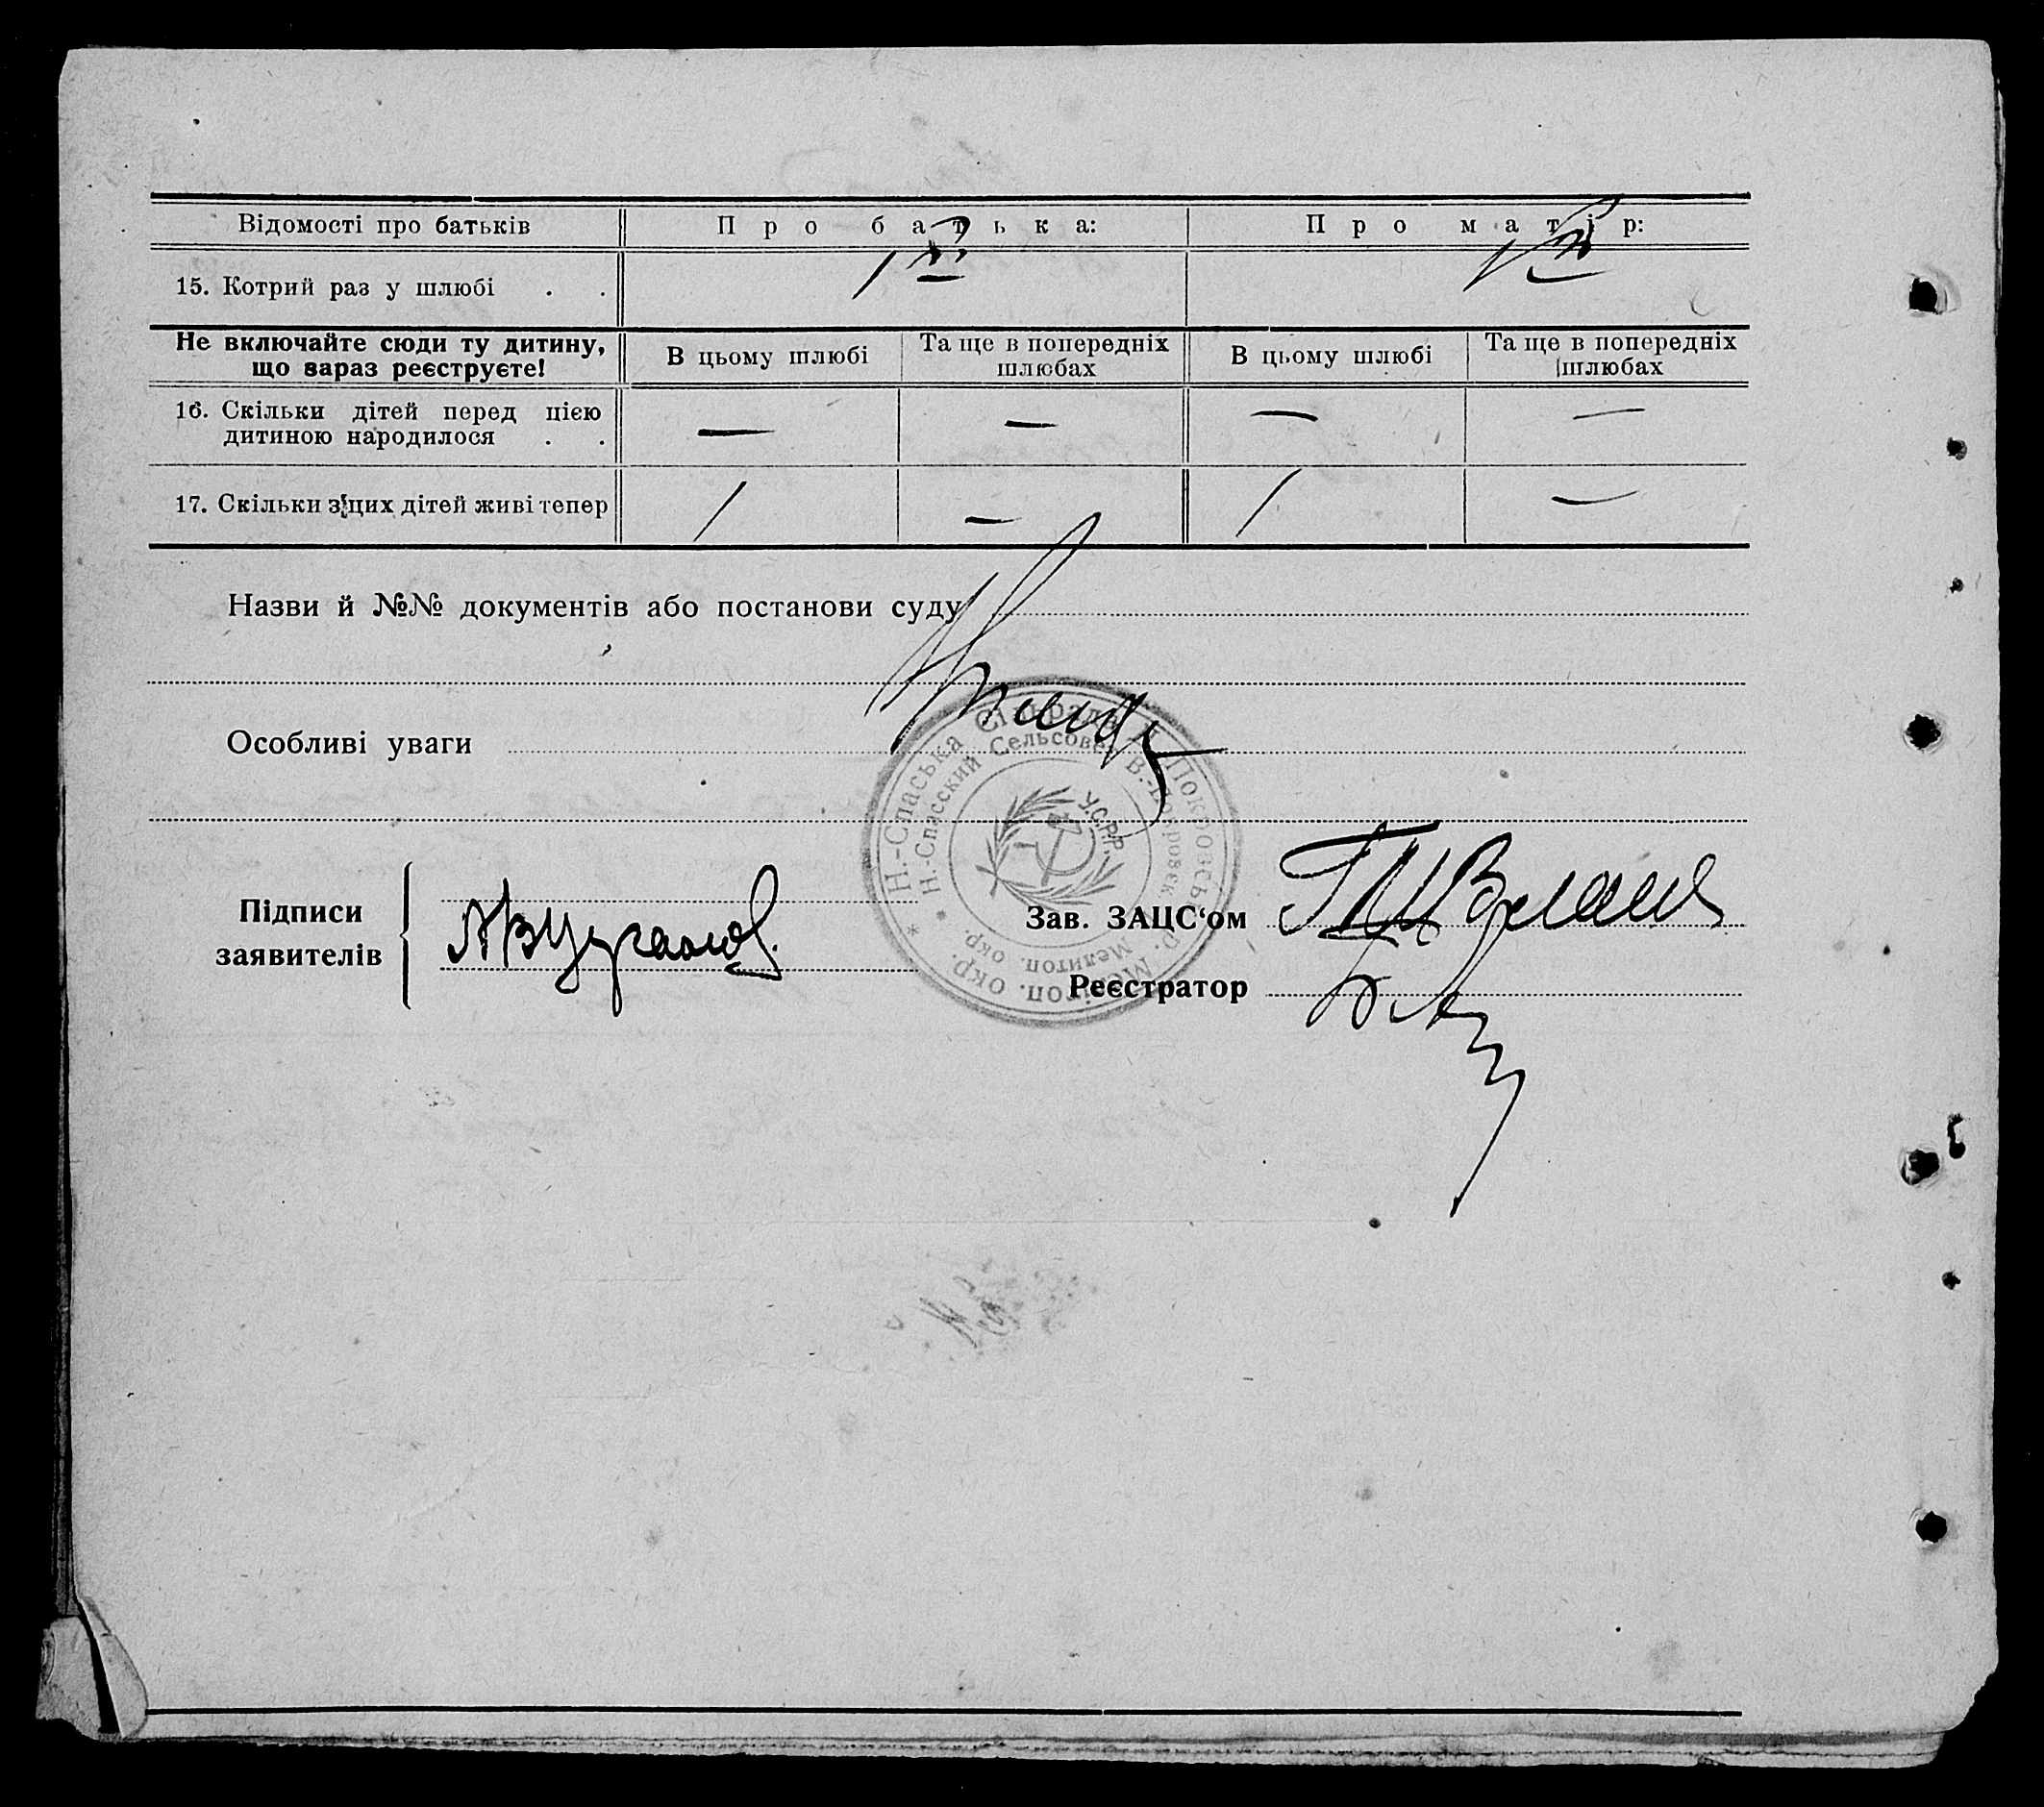 Відомості про батьків
Про батька:
Про матір:
15. Котрий раз у шлюбі . .
1й
1й
Не включайте сюди ту дитину, що зараз реєструєте!
В цьому шлюбі
Та ще в попередніх шлюбах
В цьому шлюбі
Та ще в попередніх шлюбах
16. Скільки дітей перед цією
дитиною народилося . .
— — — —
17. Скільки з цих дітей живі тепер
1 — 1 —
Назви й №№ документів або постанови суду
Особливі уваги
Н.-Спаська Сільрада
Н.-Спасский Сельсовет В.-Покровск.
Мелітоп. окр.
Мелитоп. окр.
У.С.Р.Р.
Підписи
заявителів
Зав. ЗАЦС‘ом
Реєстратор